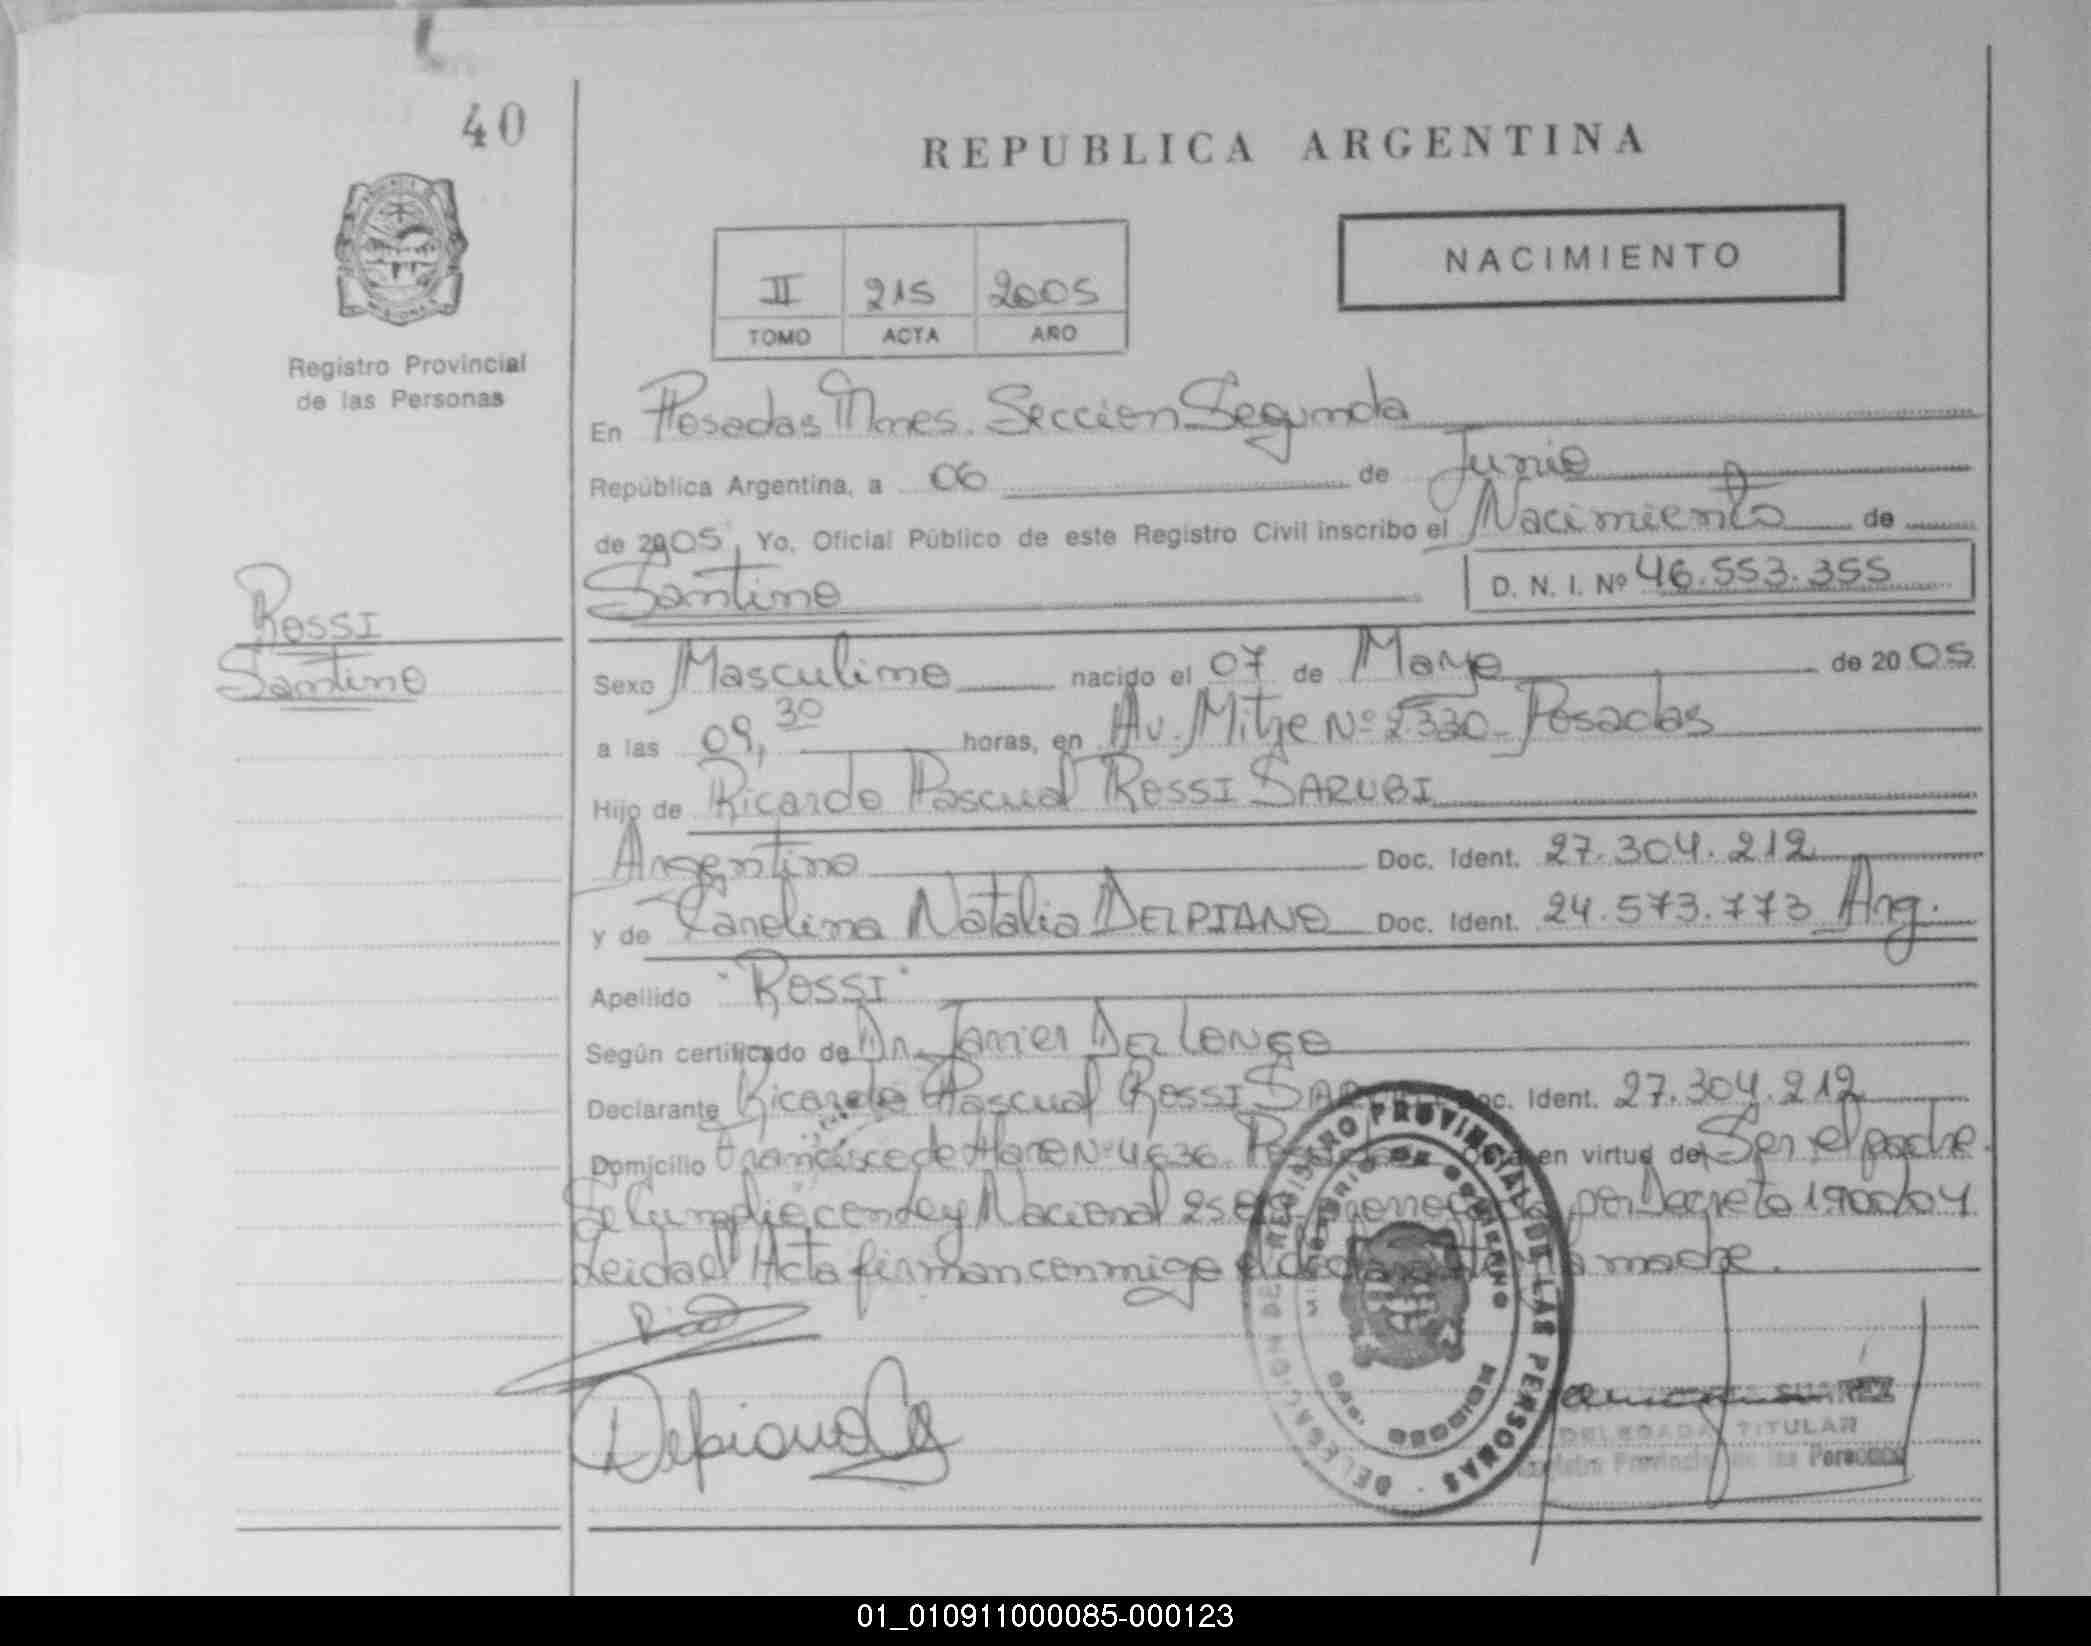 40
REPUBLICA ARGENTINA
NACIMIENTO
II 215 2005
TOMO ACTA AÑO
Registro Provincial
de las Personas
En Posadas Mnes. Sección Segunda
República Argentina, a 06 de Junio
de 2005, Yo, Oficial Público de este Registro Civil inscribo el Nacimiento de
Santino D. N. I. Nº 46.553.355
Rossi
Santino
Sexo Masculino nacido el 07 de Mayo de 2005
a las 09,30 horas, en Av. Mitre Nº 2330 - Posadas
Hijo de Ricardo Pascual ROSSI SARUBI
Argentino Doc. Ident. 27.304.212
y de Carolina Natalia DELPIANO Doc. Ident. 24.573.773 Arg.
Apellido "ROSSI"
Según certificado de Dr. Javier DEL LONGO
Declarante Ricardo Pascual ROSSI Doc. Ident. 27.304.212
Domicilio Francisco de Haro Nº 4636 - en virtud de Ser el padre.
Se Cumplió con Ley Nacional por Decreto 1900/04
Leida el Acta firman conmigo el madre.
Delpiano
DELEGACIÓN DE REGISTRO PROVINCIAL DE LAS PERSONAS
MINISTERIO DE GOBIERNO
MISIONES
SUAREZ
DELEGADA TITULAR
Registro Provincial de las Personas
01_010911000085-000123